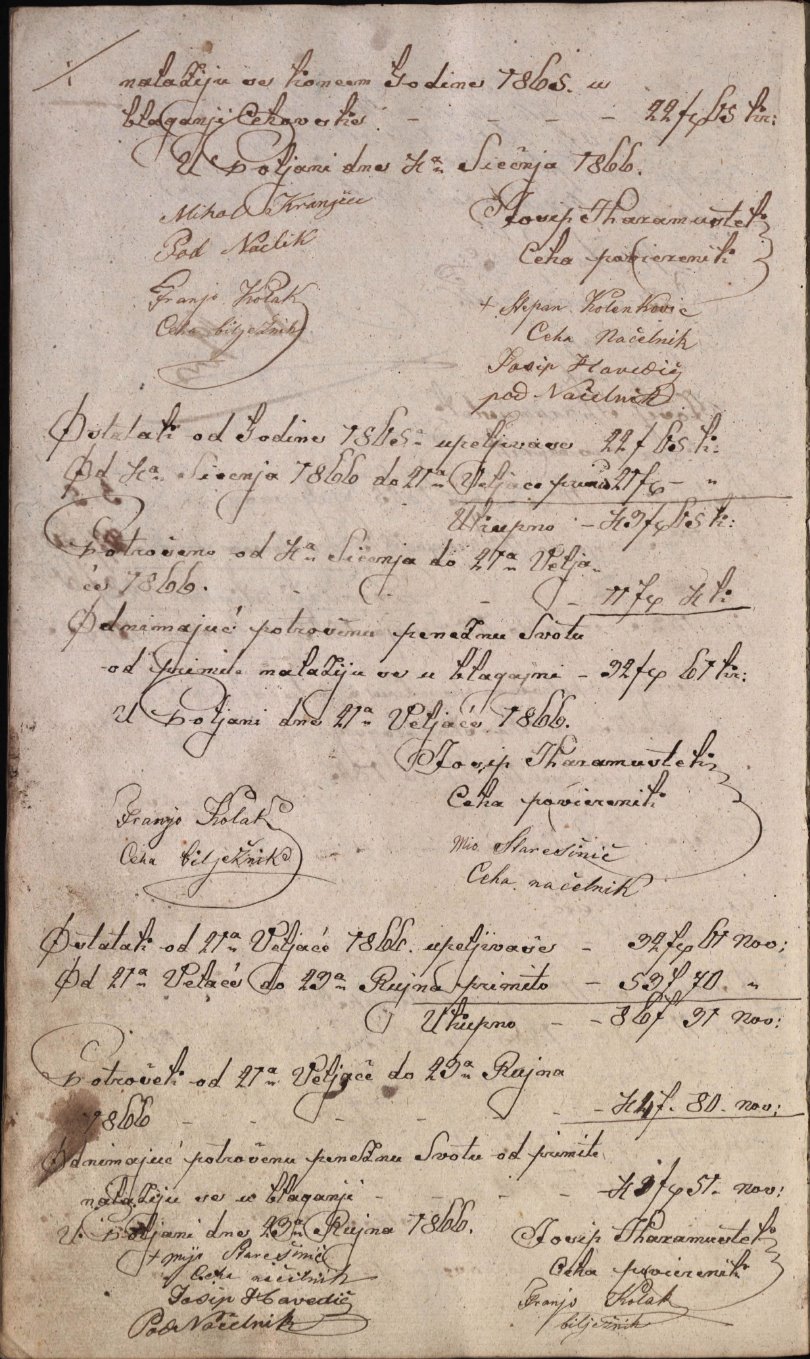 nalaziju se koncem Godine 1865. u
blagajni Cehovske - - - - 22 f 65 kr:
U Poljani dne 4a Siečnja 1866.
Mihal Kranjčec
Pod Načlik
Franjo Kolak
Ceha bilježnik
Josip Tharamustek
Ceha povierenik
+ Stepan Kolenković
Ceha Načelnik
Josip Havedič
pod Načelnik
Ostatak od Godine 1865a upeljivase 22 f 65 k:
Od 4a Siecnja 1866 do 21a Veljače 21 f - "
Ukupno - 43 f 65 k:
Potročeno od 4a Siečnja do 21a Velja-
če 1866. - - - - 11 f 4 k:
Odnimajuć potročenu peneznu Svotu
od primite nalaziju se u blagajni - 32 f 61 kr:
U Poljani dne 21a Veljače 1866.
Josip Tharamustek
Ceha povierenik
Franjo Kolak
Ceha bilježnik
Mio Staresinič
Ceha načelnik
Ostatak od 21a Veljače 1866. upeljivaše - 32 f 61 nov:
Od 21a Velače do 23a Rujna primito - 53 f 70 "
Ukupno - - 86 f 31 nov:
Potroček od 21a Veljače do 23a Rujna
1866 - - - - - 44 f. 80. nov:
Odnimajuć potročenu peneznu Svotu od primite
nalaziju se u blagajni - - - - 51. nov:
U Poljani dne 23a Rujna 1866.
+ mijo Staresinič
Ceha načelnik
Josip Havedič
Pod Načelnik
Josip Tharamustek
Ceha povierenik
Franjo Kolak
bilježnik